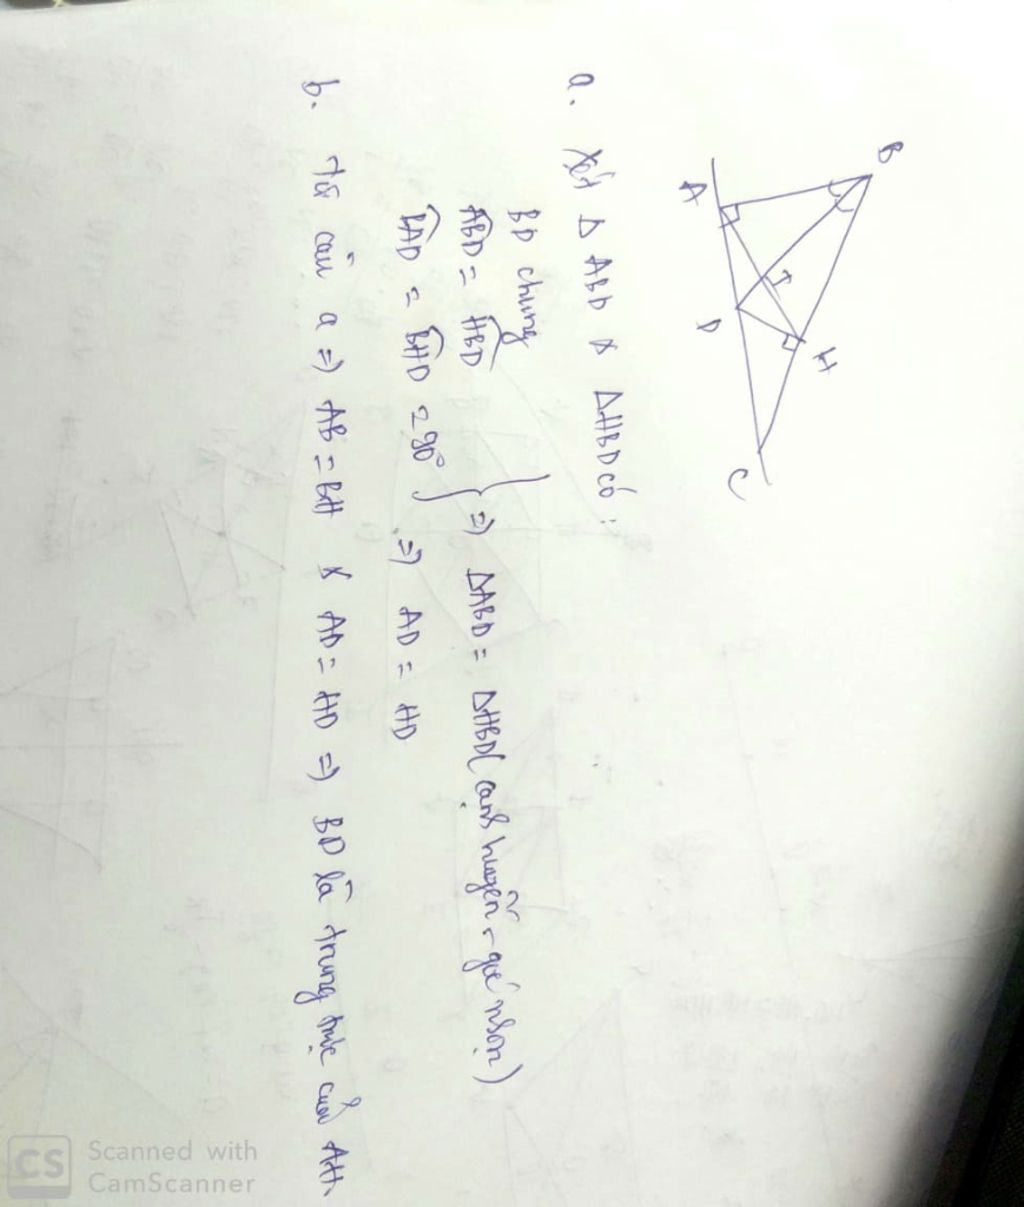 B
A
I
H
D
C
a. Xét Δ ABD & ΔHBD có:
BD chung
ABD = HBD
BAD = BHD = 90° } => ΔABD = ΔHBD (cạnh huyền - góc nhọn)
=> AD = HD
b. Từ câu a => AB = BH & AD = HD => BD là trung trực của AH.
CS Scanned with
CamScanner